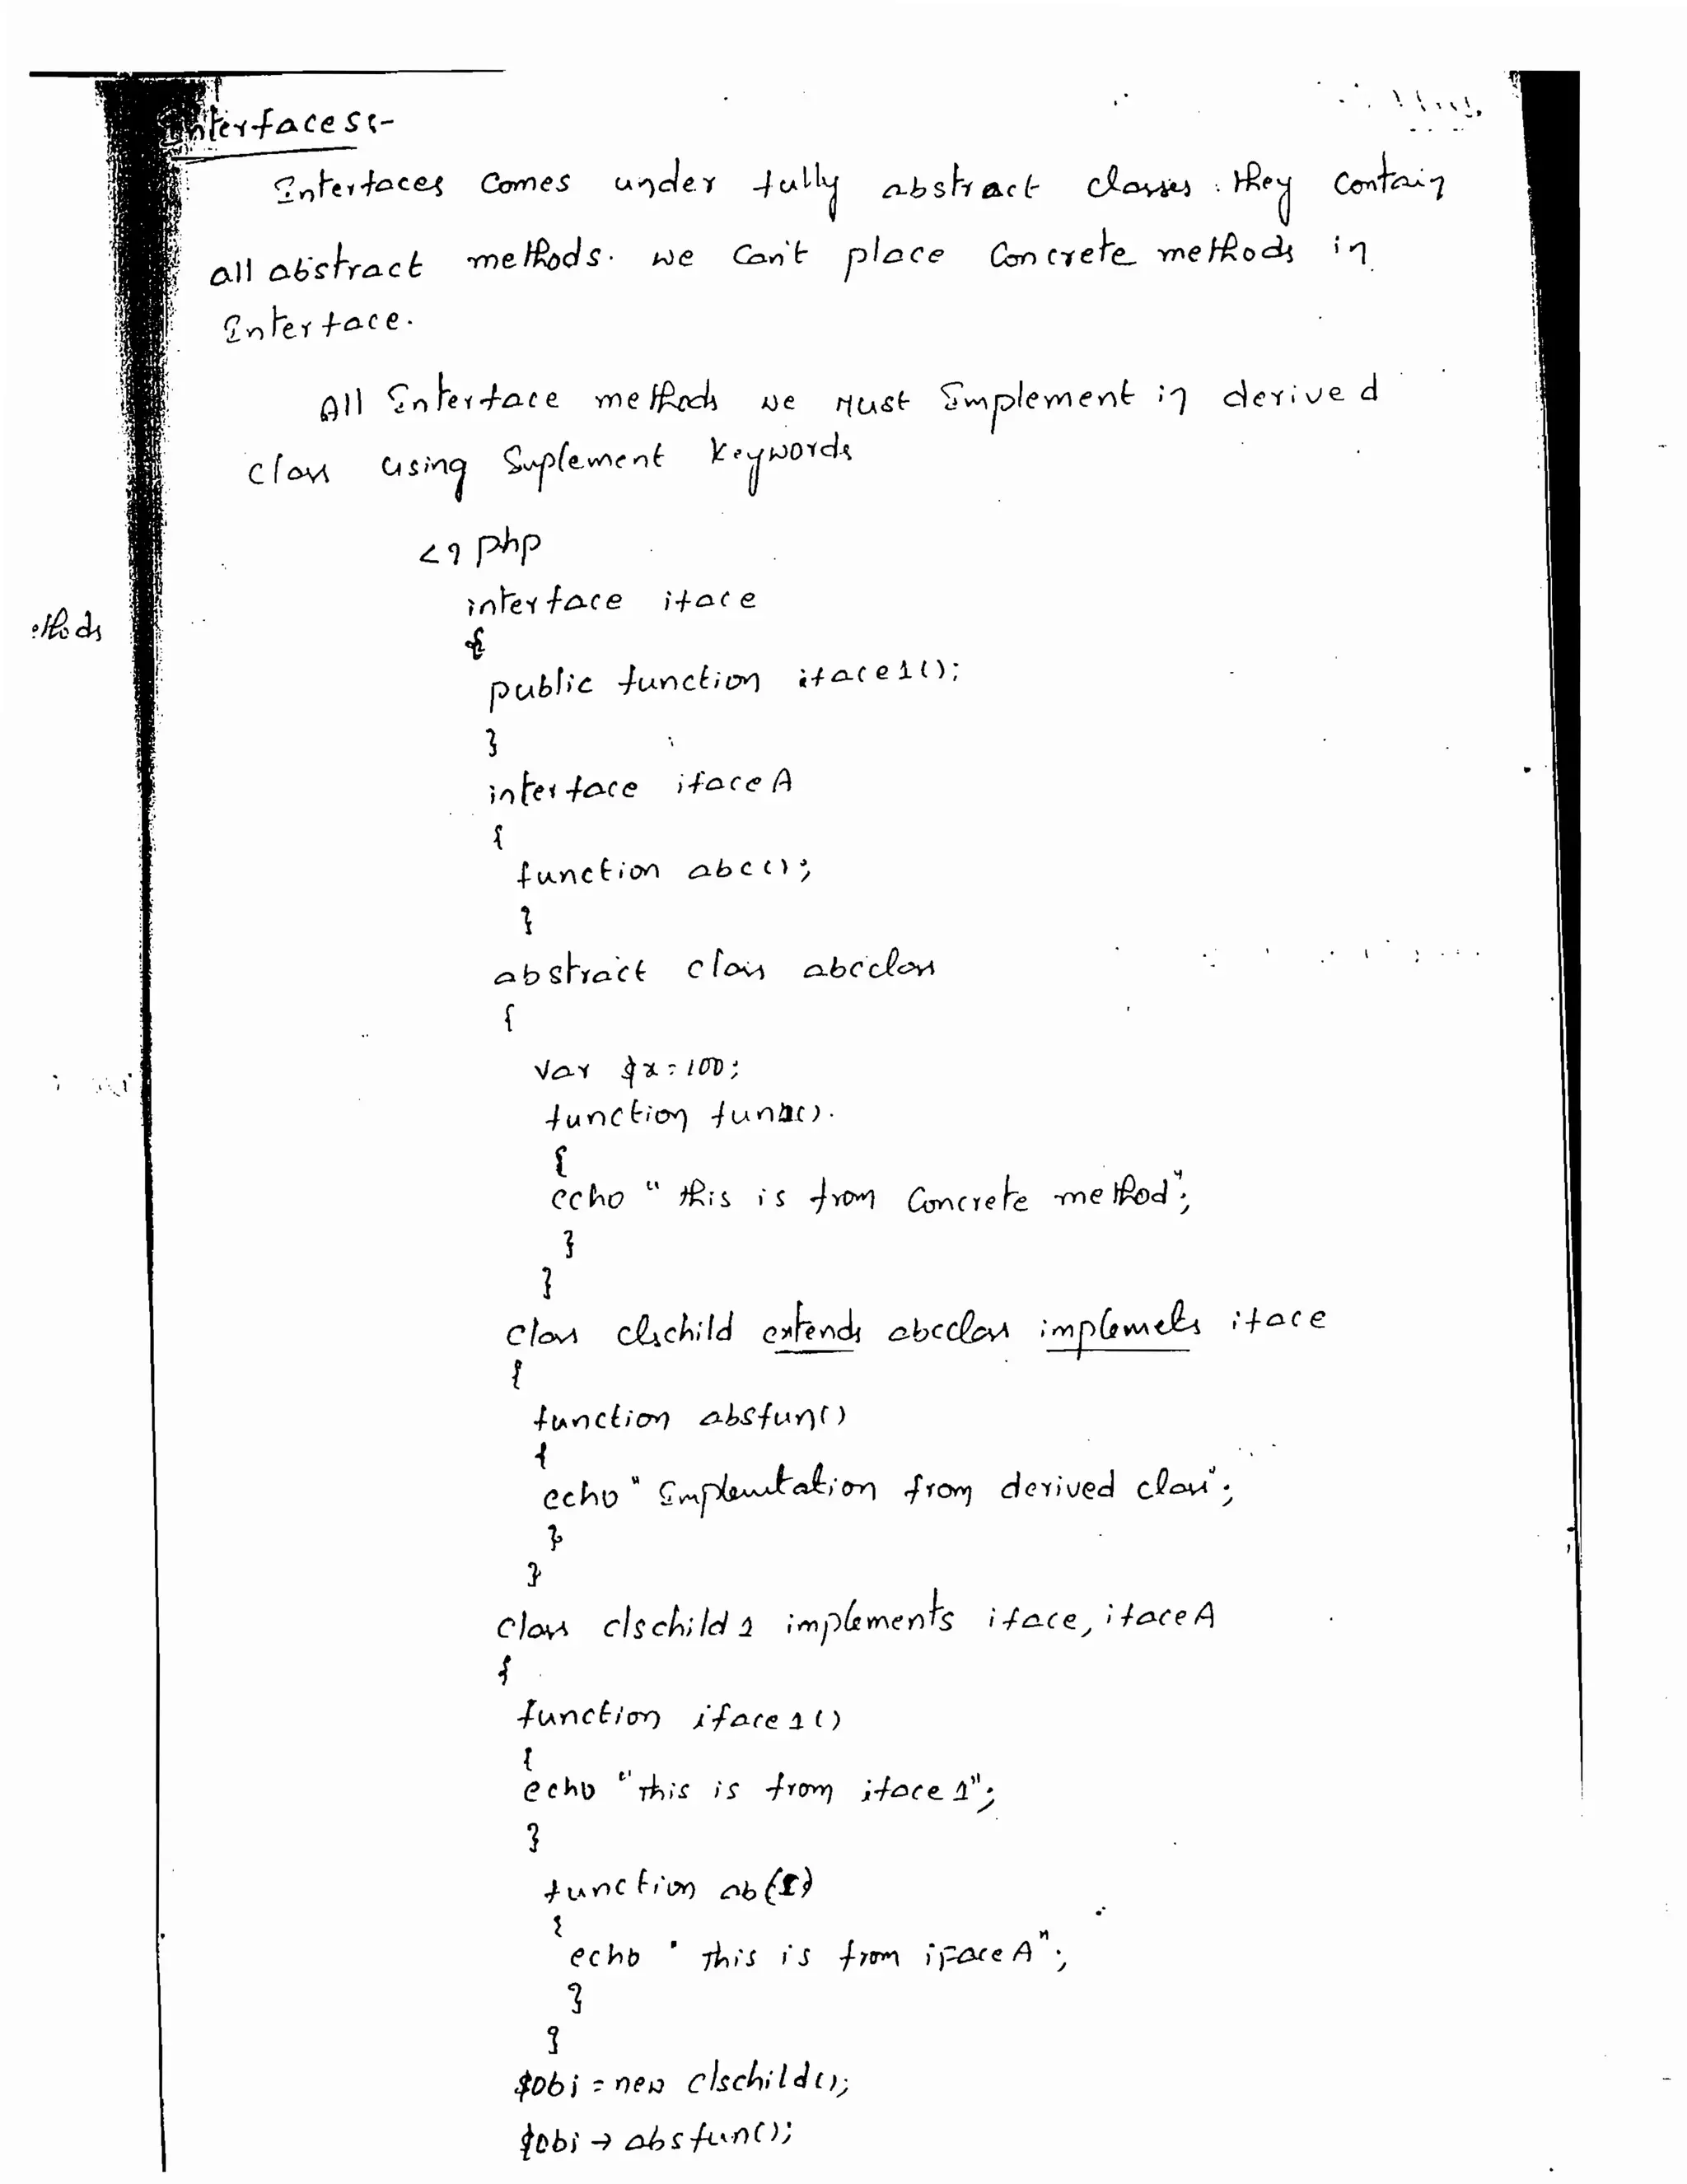 Interfaces:-
Interfaces Comes under fully abstract classes. they contain
all abstract methods. we Can't place Concrete methods in
Interface.
All Interface methods we Must Implement in derived
class using Implement keywords
<? php
interface iface
{
public function iface1();
}
interface ifaceA
{
function abc();
}
abstract class abcclass
{
ethods
var $x=100;
function fun
{
echo " this is from Concrete method";
}
}
class clschild extends abcclass implemets iface
{
function absfun()
{
echo " Implemntation from derived class";
}
}
class clschild1 implements iface, ifaceA
{
function iface1()
{
echo "this is from iface1";
}
function
{
echo " This is from ifaceA";
}
}
$obj = new clschild();
$obj → absfun();